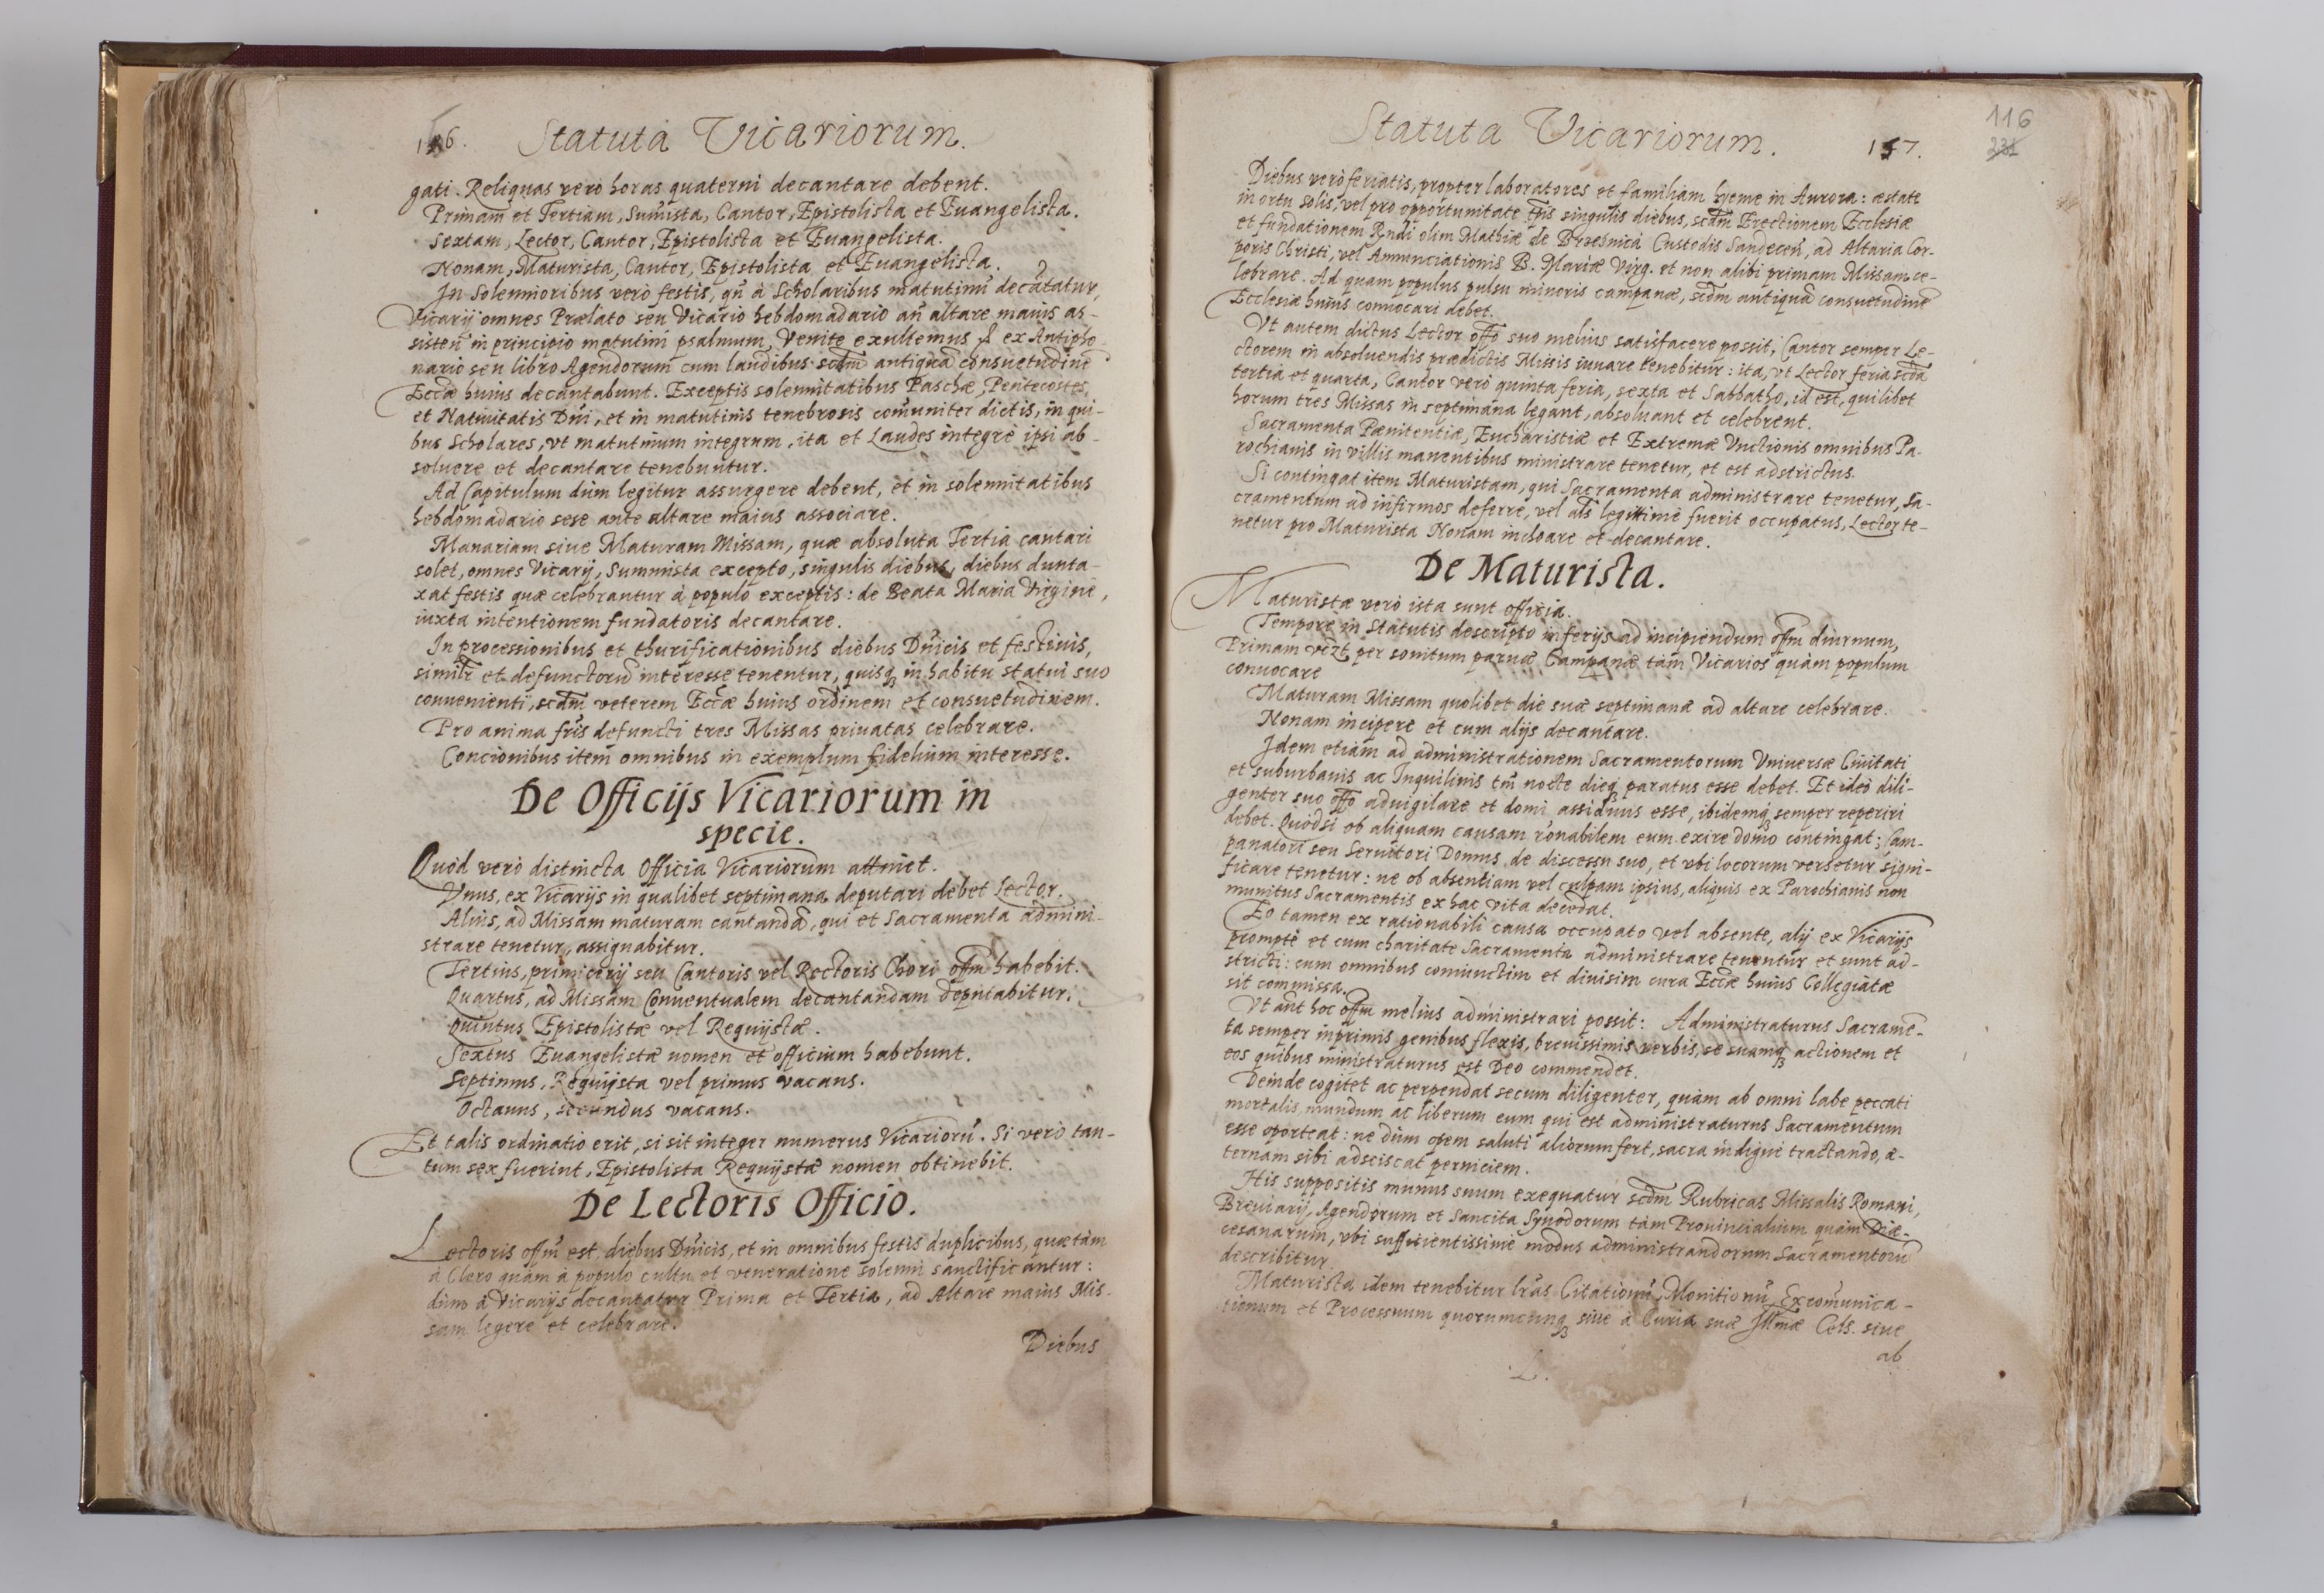 156. Statuta Vicariorum.
gati. Reliquas verò horas quaterni decantare debent.
Primam et Tertiam, Sum̃ista, Cantor, Epistolista et Euangelista.
Sextam, Lector, Cantor, Epistolista et Euangelista.
Nonam, Maturista, Cantor, Epistolista et Euangelista.
In Solennioribus verò festis, qñ à Scholaribus matutinũ decãtatur,
Vicarij omnes Prælato seu Vicario hebdomadario añ altare maius as-
sisteñ in principio matutini psalmum, Venite exultemus ex Antipho-
nario seu libro Agendorum cum laudibus scdm̃ antiquã consuetudinẽ
Eccæ huius decantabunt. Exceptis solennitatibus Paschæ, Pentecostes,
et Natiuitatis Dñi, et in matutinis tenebrosis com̃uniter dictis, in qui-
bus Scholares, vt matutinum integrum, ita et Laudes integrè ipsi ab-
soluere et decantare tenebuntur.
Ad Capitulum dùm legitur assurgere debent, et in solennitatibus
hebdomadario sese ante altare maius associare.
Manariam siue Maturam Missam, quæ absoluta Tertia cantari
solet, omnes Vicarij, Summista excepto, singulis diebus, diebus dunta-
xat festis quæ celebrantur à populo exceptis: de Beata Maria Virgine,
iuxta intentionem fundatoris decantare.
In processionibus et thurificationibus diebus Dñicis et festiuis,
similr̃ et defunctorũ interesse tenentur, quisq; in habitu statui suo
conuenienti, scdm̃ veterem Eccæ huius ordinem et consuetudinem.
Pro anima fris̃ defuncti tres Missas priuatas celebrare.
Concionibus item omnibus in exemplum fidelium interesse.
De Officijs Vicariorum in
specie.
Quòd verò distincta Officia Vicariorum attinet.
Vnus, ex Vicarijs in qualibet septimana deputari debet Lector.
Alius, ad Missam maturam cantandã, qui et Sacramenta admini-
strare tenetur, assignabitur.
Tertius, primicerij seu Cantoris vel Rectoris Chori offm̃ habebit.
Quartus, ad Missam Conuentualem decantandam deputabitur.
Quintus Epistolistæ vel Requijstæ.
Sextus Euangelistæ nomen et officium habebunt.
Septimus, Requijsta vel primus vacans.
Octauus, secundus vacans.
Et talis ordinatio erit, si sit integer numerus Vicariorũ. Si verò tan-
tum sex fuerint, Epistolista Requijstæ nomen obtinebit.
De Lectoris Officio.
Lectoris offm̃ est, diebus Dñicis, et in omnibus festis duplicibus, quæ tàm
à Clero quàm à populo cultu et veneratione solenni sanctificantur:
dùm à Vicarijs decantatur Prima et Tertia, ad Altare maius Mis-
sam legere et celebrare.
Diebus
Statuta Vicariorum. 157.
116
231
Diebus verò feriatis, propter laboratores et familiam hyeme in Aurora: æstate
in ortu solis, vel pro opportunitate tp̃is singulis diebus, scdm̃ Erectionem Ecclesiæ
et fundationem Rndi olim Mathiæ de Brzeźnica Custodis Sandeceñ, ad Altaria Cor-
poris Christi, vel Annunciationis B. Mariæ Virg. et non alibi primam Missam ce-
lebrare. Ad quam populus pulsu minoris campanæ, scdm̃ antiquã consuetudinẽ
Ecclesiæ huius conuocari debet.
Vt autem dictus Lector offo suo melius satisfacere possit, Cantor semper Le-
ctorem in absoluendis prædictis Missis iuuare tenebitur: ita, vt Lector feria scda
tertia et quarta, Cantor verò quinta feria, sexta et Sabbatho, id est, quilibet
horum tres Missas in septimana legant, absoluant et celebrent.
Sacramenta Pænitentiæ, Eucharistiæ et Extremæ Vnctionis omnibus Pa-
rochianis in villis manentibus ministrare tenetur, et est adstrictus.
Si contingat item Maturistam, qui Sacramenta administrare tenetur, Sa-
cramentum ad infirmos deferre, vel als̃ legittimè fuerit occupatus, Lector te-
netur pro Maturista Nonam inchoare et decantare.
De Maturista.
Maturistæ verò ista sunt officia.
Tempore in Statutis descripto in ferijs ad incipiendum offm̃ diurnum,
Primam vizt per sonitum paruæ Campanæ tàm Vicarios quàm populum
conuocare
Maturam Missam quolibet die suæ septimanæ ad altare celebrare.
Nonam incipere et cum alijs decantare.
Idem etiam ad administrationem Sacramentorum Vniuersæ Ciuitati
et suburbanis ac Inquilinis tm̃ nocte dieq; paratus esse debet. Et ideò dili-
genter suo offo aduigilare et domi assiduus esse, ibidemq; semper reperiri
debet. Quòdsi ob aliquam causam rõnabilem eum exire domo contingat; Cam-
panatori seu Seruitori Domus, de discessu suo, et vbi locorum versetur signi-
ficare tenetur: ne ob absentiam vel culpam ipsius, aliquis ex Parochianis non
munitus Sacramentis ex hac vita decedat.
Eo tamen ex rationabili causa occupato vel absente, alij ex Vicarijs
promptè et cum charitate Sacramenta administrare tenentur et sunt ad-
stricti: cum omnibus coniunctim et diuisim cura Eccæ huius Collegiatæ
sit commissa.
Vt aũt hoc offm̃ melius administrari possit: Administraturus Sacramẽ-
ta semper inprimis genibus flexis, breuissimis verbis, se suamq; actionem et
eos quibus ministraturus est Deo commendet.
Deinde cogitet ac perpendat secum diligenter, quàm ab omni labe peccati
mortalis mundum ac liberum eum qui est administraturus Sacramentum
esse oporteat: ne dùm opem saluti aliorum fert, sacra indignè tractando, æ-
ternam sibi adsciscat perniciem.
His suppositis munus suum exequatur scdm̃ Rubricas Missalis Romani,
Breuiarij, Agendorum et Sancita Synodorum tàm Prouincialium quàm Diæ-
cesanarum, vbi sufficientissimè modus administrandorum Sacramentorũ
describitur.
Maturista idem tenebitur lras̃ Citationũ, Monitionũ, Excom̃unica-
tionum et Processuum quorumcunq; siue à Curia suæ Illmæ Cels. siue
ab
L.